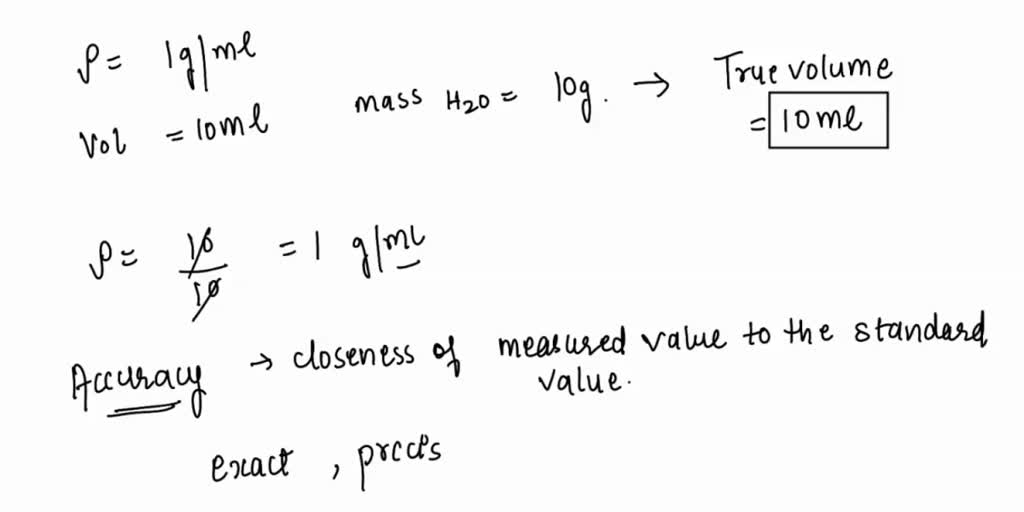 ρ = 1g/ml
Vol = 10ml
mass H2O = 10g. → True volume
= 10ml
ρ = 10/10 = 1 g/ml
Accuracy → closeness of measured value to the standard
value.
exact, preccis